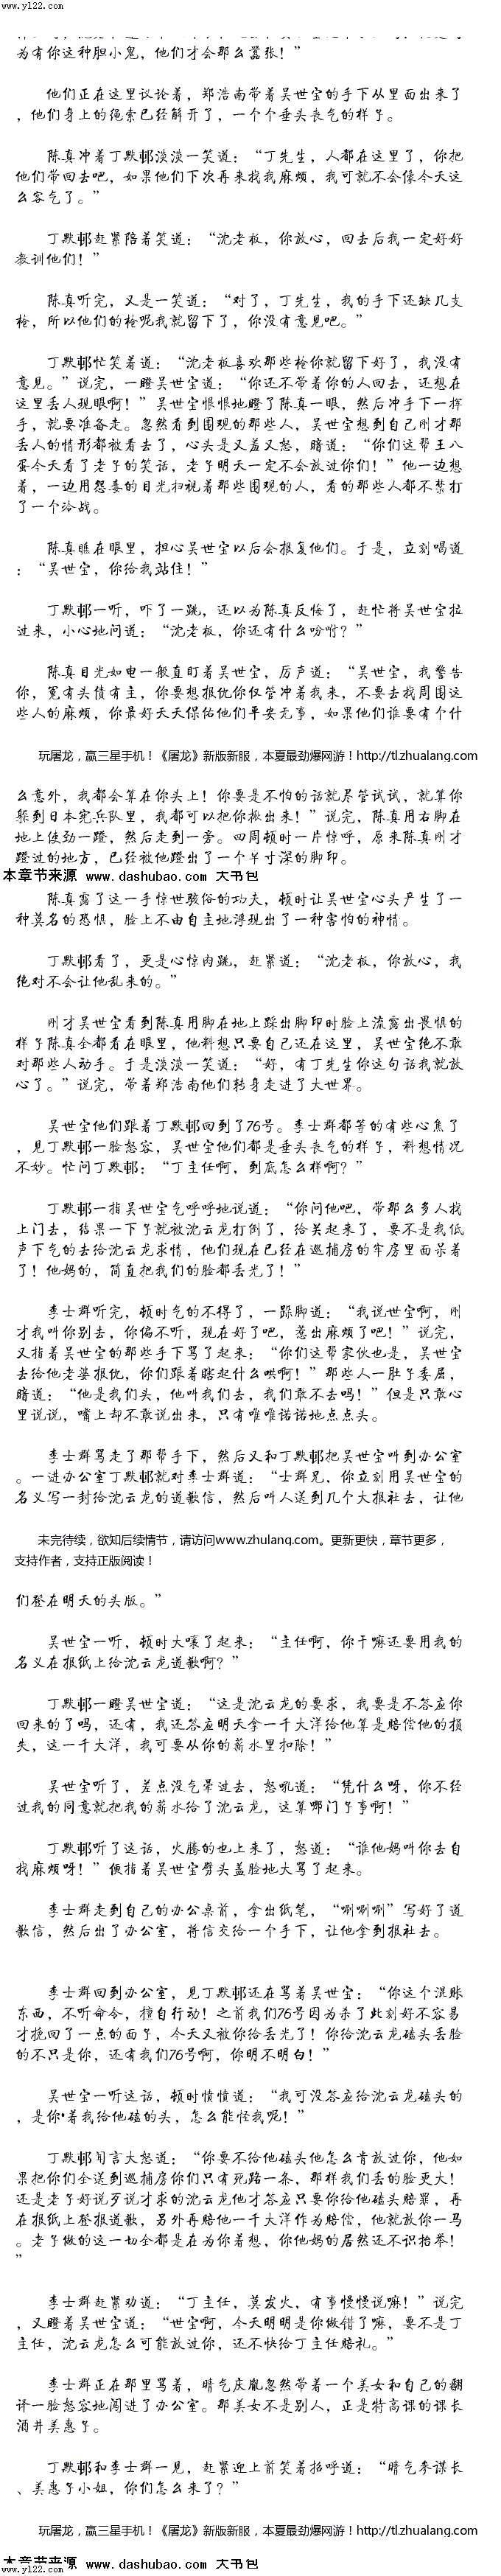 www.yl22.com
为有你这种胆小鬼，他们才会那么嚣张！”
他们正在这里议论着，郑浩南带着吴世宝的手下从里面出来了
，他们身上的绳索已经解开了，一个个垂头丧气的样子。
陈真冲着丁默邨淡淡一笑道：“丁先生，人都在这里了，你把
他们带回去吧，如果他们下次再来找我麻烦，我可就不会像今天这
么客气了。”
丁默邨赶紧陪着笑道：“沈老板，你放心，回去后我一定好好
教训他们！”
陈真听完，又是一笑道：“对了，丁先生，我的手下还缺几支
枪，所以他们的枪呢我就留下了，你没有意见吧。”
丁默邨忙笑着道：“沈老板喜欢那些枪你就留下好了，我没有
意见。”说完，一瞪吴世宝道：“你还不带着你的人回去，还想在
这里丢人现眼啊！”吴世宝恨恨地瞪了陈真一眼，然后冲手下一挥
手，就要准备走。忽然看到围观的那些人，吴世宝想到自己刚才那
丢人的情形都被看去了，心头是又羞又怒，暗道：“你们这帮王八
蛋今天看了老子的笑话，老子明天一定不会放过你们！”他一边想
着，一边用怨毒的目光扫视着那些围观的人，看的那些人都不禁打
了一个冷战。
陈真瞧在眼里，担心吴世宝以后会报复他们。于是，立刻喝道
：“吴世宝，你给我站住！”
丁默邨一听，吓了一跳，还以为陈真反悔了，赶忙将吴世宝拉
过来，小心地问道：“沈老板，你还有什么吩咐？”
陈真目光如电一般直盯着吴世宝，厉声道：“吴世宝，我警告
你，冤有头债有主，你要想报仇你仅管冲着我来，不要去找周围这
些人的麻烦，你最好天天保佑他们平安无事，如果他们谁要有个什
玩屠龙，赢三星手机！《屠龙》新版新服，本夏最劲爆网游！http://tl.zhualang.com
么意外，我都会算在你头上！你要是不怕的话就尽管试试，就算你
躲到日本宪兵队里，我都可以把你揪出来！”说完，陈真用右脚在
地上使劲一蹬，然后走到一旁。四周顿时一片惊呼，原来陈真刚才
蹬过的地方，已经被他蹬出了一个半寸深的脚印。
本章节来源 www.dashubao.com 大书包
陈真露了这一手惊世骇俗的功夫，顿时让吴世宝心头产生了一
种莫名的恐惧，脸上不由自主地浮现出了一种害怕的神情。
丁默邨看了，更是心惊肉跳，赶紧道：“沈老板，你放心，我
绝对不会让他乱来的。”
刚才吴世宝看到陈真用脚在地上踩出脚印时脸上流露出畏惧的
样子陈真全都看在眼里，他料想只要自己还在这里，吴世宝绝不敢
对那些人动手。于是淡淡一笑道：“好，有丁先生你这句话我就放
心了。”说完，带着郑浩南他们转身走进了大世界。
吴世宝他们跟着丁默邨回到了76号。李士群都等的有些心焦了
，见丁默邨一脸怒容，吴世宝他们都是垂头丧气的样子，料想情况
不妙。忙问丁默邨：“丁主任啊，到底怎么样啊？”
丁默邨一指吴世宝气呼呼地说道：“你问他吧，带那么多人找
上门去，结果一下子就被沈云龙打倒了，给关起来了，要不是我低
声下气的去给沈云龙求情，他们现在已经在巡捕房的牢房里面呆着
了！他妈的，简直把我们的脸都丢光了！”
李士群听完，顿时气的不得了，一跺脚道：“我说世宝啊，刚
才我叫你别去，你偏不听，现在好了吧，惹出麻烦了吧！”说完，
又指着吴世宝的那些手下骂了起来：“你们这帮家伙也是，吴世宝
去给他老婆报仇，你们跟着瞎起什么哄啊！”那些人一肚子委屈，
暗道：“他是我们头，他叫我们去，我们敢不去吗！”但是只敢心
里说说，嘴上却不敢说出来，只有唯唯诺诺地点点头。
李士群骂走了那帮手下，然后又和丁默邨把吴世宝叫到办公室
。一进办公室丁默邨就对李士群道：“士群兄，你立刻用吴世宝的
名义写一封给沈云龙的道歉信，然后叫人送到几个大报社去，让他
未完待续，欲知后续情节，请访问www.zhulang.com。更新更快，章节更多，
支持作者，支持正版阅读！
们登在明天的头版。”
吴世宝一听，顿时大嚷了起来：“主任啊，你干嘛还要用我的
名义在报纸上给沈云龙道歉啊？”
丁默邨一瞪吴世宝道：“这是沈云龙的要求，我要是不答应你
回来的了吗，还有，我还答应明天拿一千大洋给他算是赔偿他的损
失，这一千大洋，我可要从你的薪水里扣除！”
吴世宝听了，差点没气晕过去，怒吼道：“凭什么呀，你不经
过我的同意就把我的薪水给了沈云龙，这算哪门子事啊！”
丁默邨听了这话，火腾的也上来了，怒道：“谁他妈叫你去自
找麻烦呀！”便指着吴世宝劈头盖脸地大骂了起来。
李士群走到自己的办公桌前，拿出纸笔，“唰唰唰”写好了道
歉信，然后出了办公室，将信交给一个手下，让他拿到报社去。
李士群回到办公室，见丁默邨还在骂着吴世宝：“你这个混账
东西，不听命令，擅自行动！之前我们76号因为杀了此刻好不容易
才挽回了一点的面子，今天又被你给丢光了！你给沈云龙磕头丢脸
的不只是你，还有我们76号啊，你明不明白！”
吴世宝一听这话，顿时愤愤道：“我可没答应给沈云龙磕头的
，是你•着我给他磕的头，怎么能怪我呢！”
丁默邨闻言大怒道：“你要不给他磕头他怎么肯放过你，他如
果把你们全送到巡捕房你们只有死路一条，那样我们丢的脸更大！
还是老子好说歹说才求的沈云龙他才答应只要你给他磕头赔罪，再
在报纸上登报道歉，另外再赔他一千大洋作为赔偿，他就放你一马
。老子做的这一切全都是在为你着想，你他妈的居然还不识抬举！
”
李士群赶紧劝道：“丁主任，莫发火，有事慢慢说嘛！”说完
，又瞪着吴世宝道：“世宝啊，今天明明是你做错了嘛，要不是丁
主任，沈云龙怎么可能放过你，还不快给丁主任赔礼。”
李士群正在那里骂着，晴气庆胤忽然带着一个美女和自己的翻
译一脸怒容地闯进了办公室。那美女不是别人，正是特高课的课长
酒井美惠子。
丁默邨和李士群一见，赶紧迎上前笑着招呼道：“晴气参谋长
、美惠子小姐，你们怎么来了？”
玩屠龙，赢三星手机！《屠龙》新版新服，本夏最劲爆网游！http://tl.zhualang.com
本章节来源 www.dashubao.com 大书包
www.yl22.com